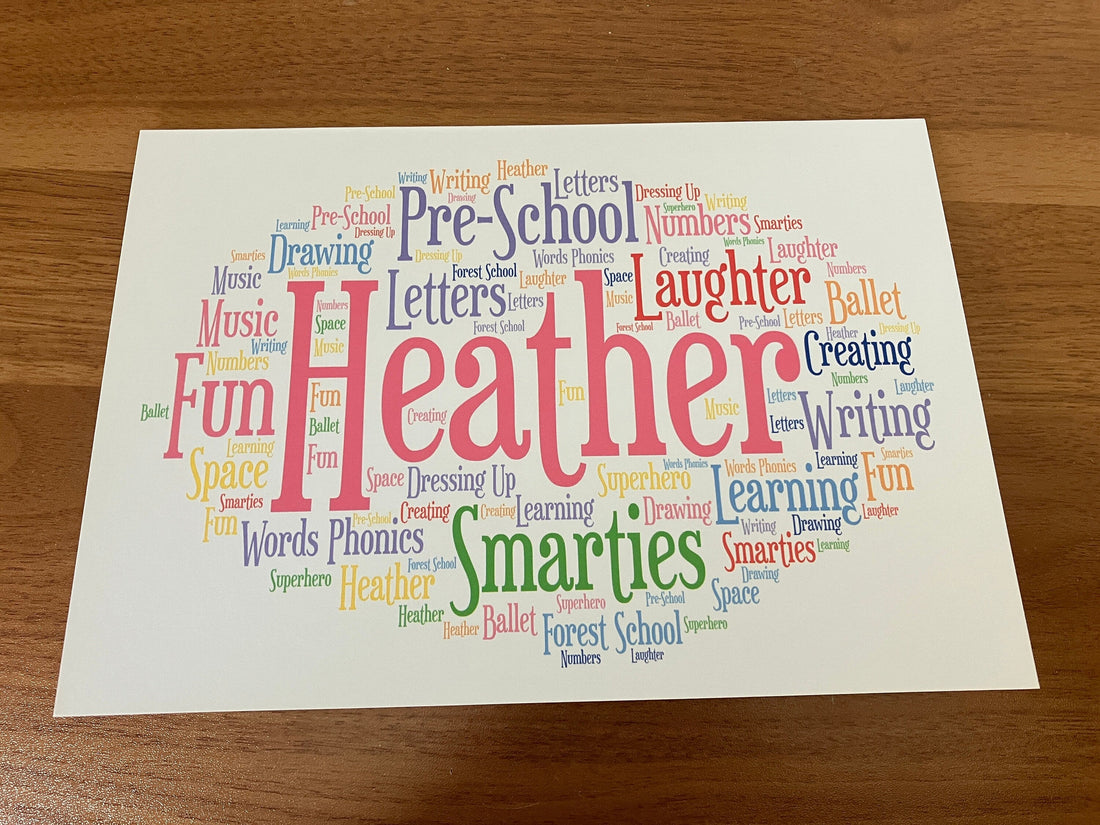 Writing Writing Heather Letters Dressing Up
Pre-School Drawing Superhero Writing
Learning Pre-School Dressing Up Pre-School Numbers Smarties
Smarties Drawing Dressing Up Words Phonics Creating Words Phonics Laughter
Music Words Phonics Letters Forest School Laughter Space Laughter Numbers
Music Numbers Space Letters Music Ballet
Writing Music Forest School Forest School Ballet Pre-School Letters Heather Dressing Up
Numbers Creating
Fun Heather Numbers
Ballet Fun Creating Fun Music Letters Laughter
Ballet Letters Writing
Learning Fun
Space Space Dressing Up Superhero Words Phonics Words Phonics Learning Smarties
Smarties Learning Fun
Fun Pre-School Creating Creating Learning Drawing Laughter
Words Phonics Smarties Writing Drawing
Forest School Smarties Learning
Superhero Heather Drawing
Heather Superhero Pre-School Space
Heather Ballet Forest School Superhero
Numbers Laughter